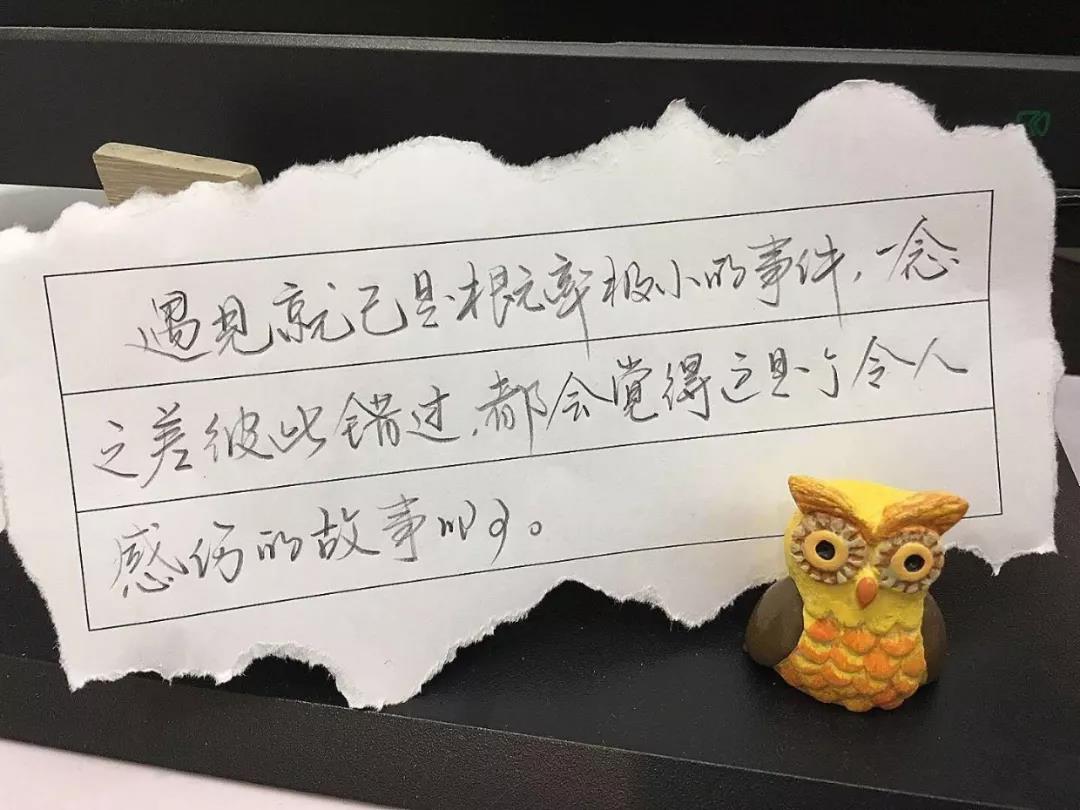 遇见就已是概率极小的事件，一念
之差彼此错过，都会觉得这是个令人
感伤的故事吧。